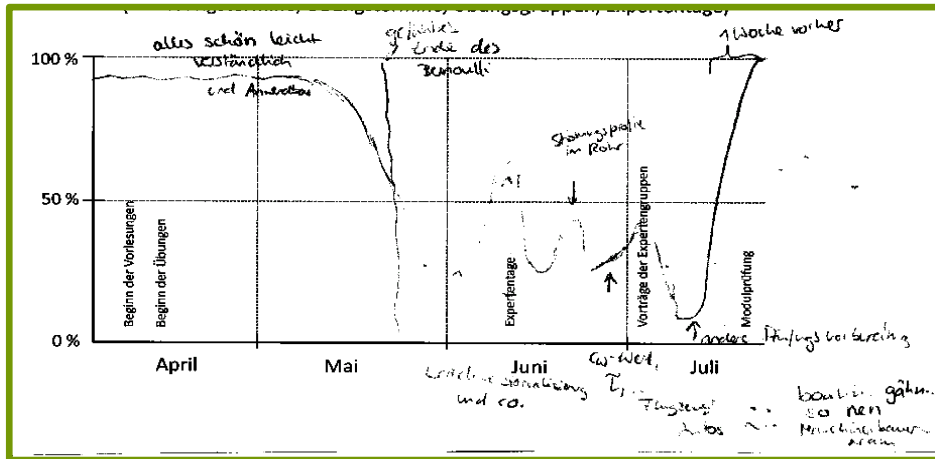 alles schön leicht
verständlich
und Anwendbar
gefühltes
Ende des
Bernoulli
1 Woche vorher
100 %
50 %
0 %
Strömungsprofile
im Rohr
Beginn der Vorlesungen
Beginn der Übungen
Expertentage
Vorträge der Expertengruppen
Modulprüfung
andere Prüfungsvorbereitung
April
Mai
Juni
Juli
cw-Wert,
und co.
Flugzeug
Autos
gähn